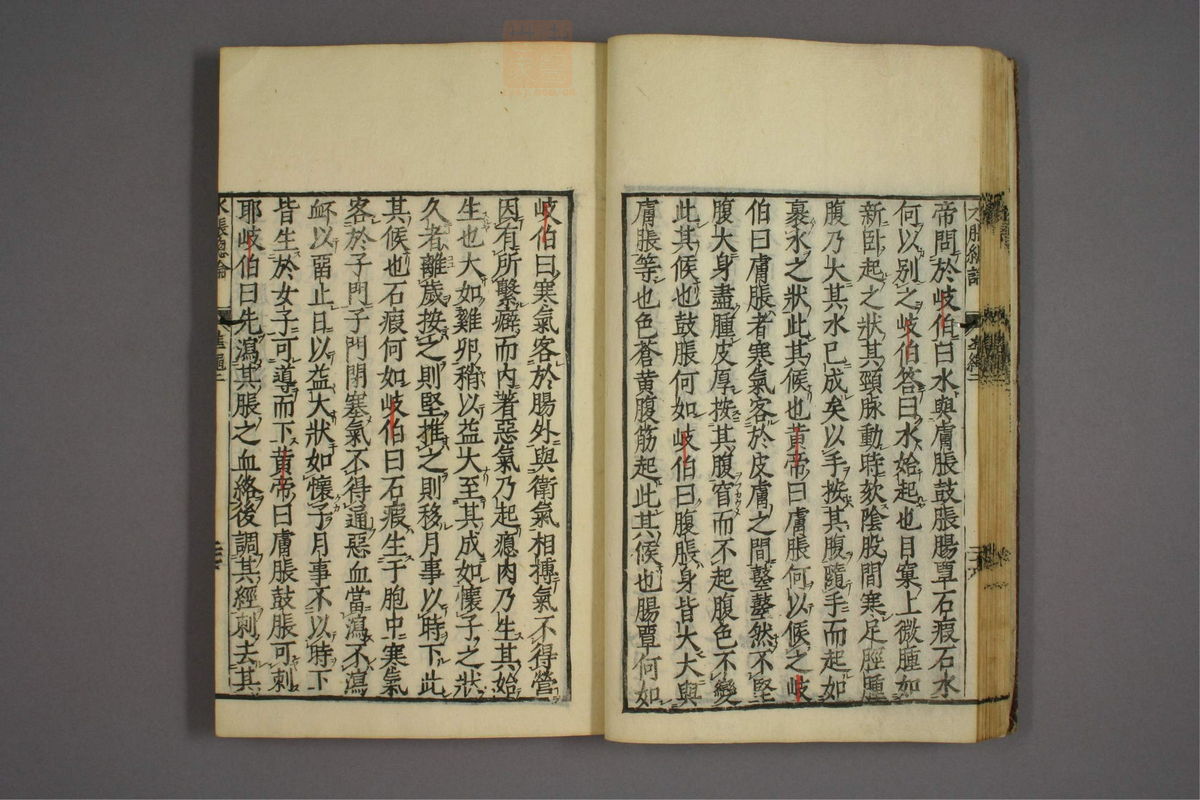 帝問於岐伯曰水與膚脹鼓脹腸覃石瘕石水
何以別之岐伯荅曰水始起也目窠上微腫如
新卧起之狀其頸脉動時欬陰股間寒足脛腫
腹乃大其水已成矣以手按其腹隨手而起如
裹水之狀此其候也黄帝曰膚脹何以候之岐
伯曰膚脹者寒氣客於皮膚之間鼞鼞然不堅
腹大身盡腫皮厚按其腹窅而不起腹色不變
此其候也鼓脹何如岐伯曰腹脹身皆大大與
膚脹等也色蒼黄腹筋起此其候也腸覃何如
岐伯曰寒氣客於腸外與衛氣相搏氣不得營
因有所繫癖而内著惡氣乃起瘜肉乃生其始
生也大如雞卵稍以益大至其成如懷子之狀
久者離歲按之則堅推之則移月事以時下此
其候也石瘕何如岐伯曰石瘕生于胞中寒氣
客於子門子門閉塞氣不得通惡血當瀉不瀉
衃以畱止日以益大狀如懷子月事不以時下
皆生於女子可導而下黄帝曰膚脹鼓脹可刺
耶岐伯曰先瀉其脹之血絡後調其經刺去其